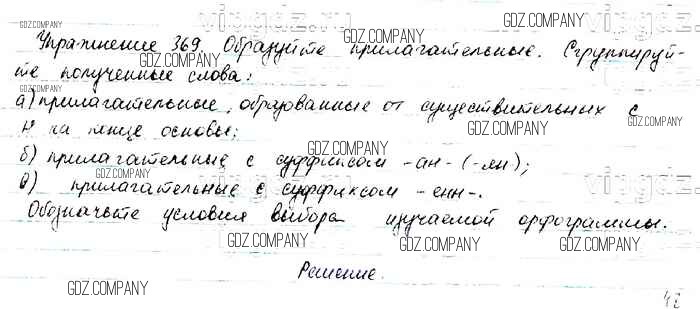 Упражнение 369. Образуйте прилагательные. Сгруппируй-
те полученные слова:
а) прилагательные, образованные от существительных с
н на конце основы;
б) прилагательные с суффиксом -ан- (-ян);
в) прилагательные с суффиксом -енн-.
Обозначьте условия выбора изучаемой орфограммы.
Решение.
GDZ.COMPANY
GDZ.COMPANY
GDZ.COMPANY
GDZ.COMPANY
GDZ.COMPANY
GDZ.COMPANY
GDZ.COMPANY
GDZ.COMPANY
GDZ.COMPANY
GDZ.COMPANY